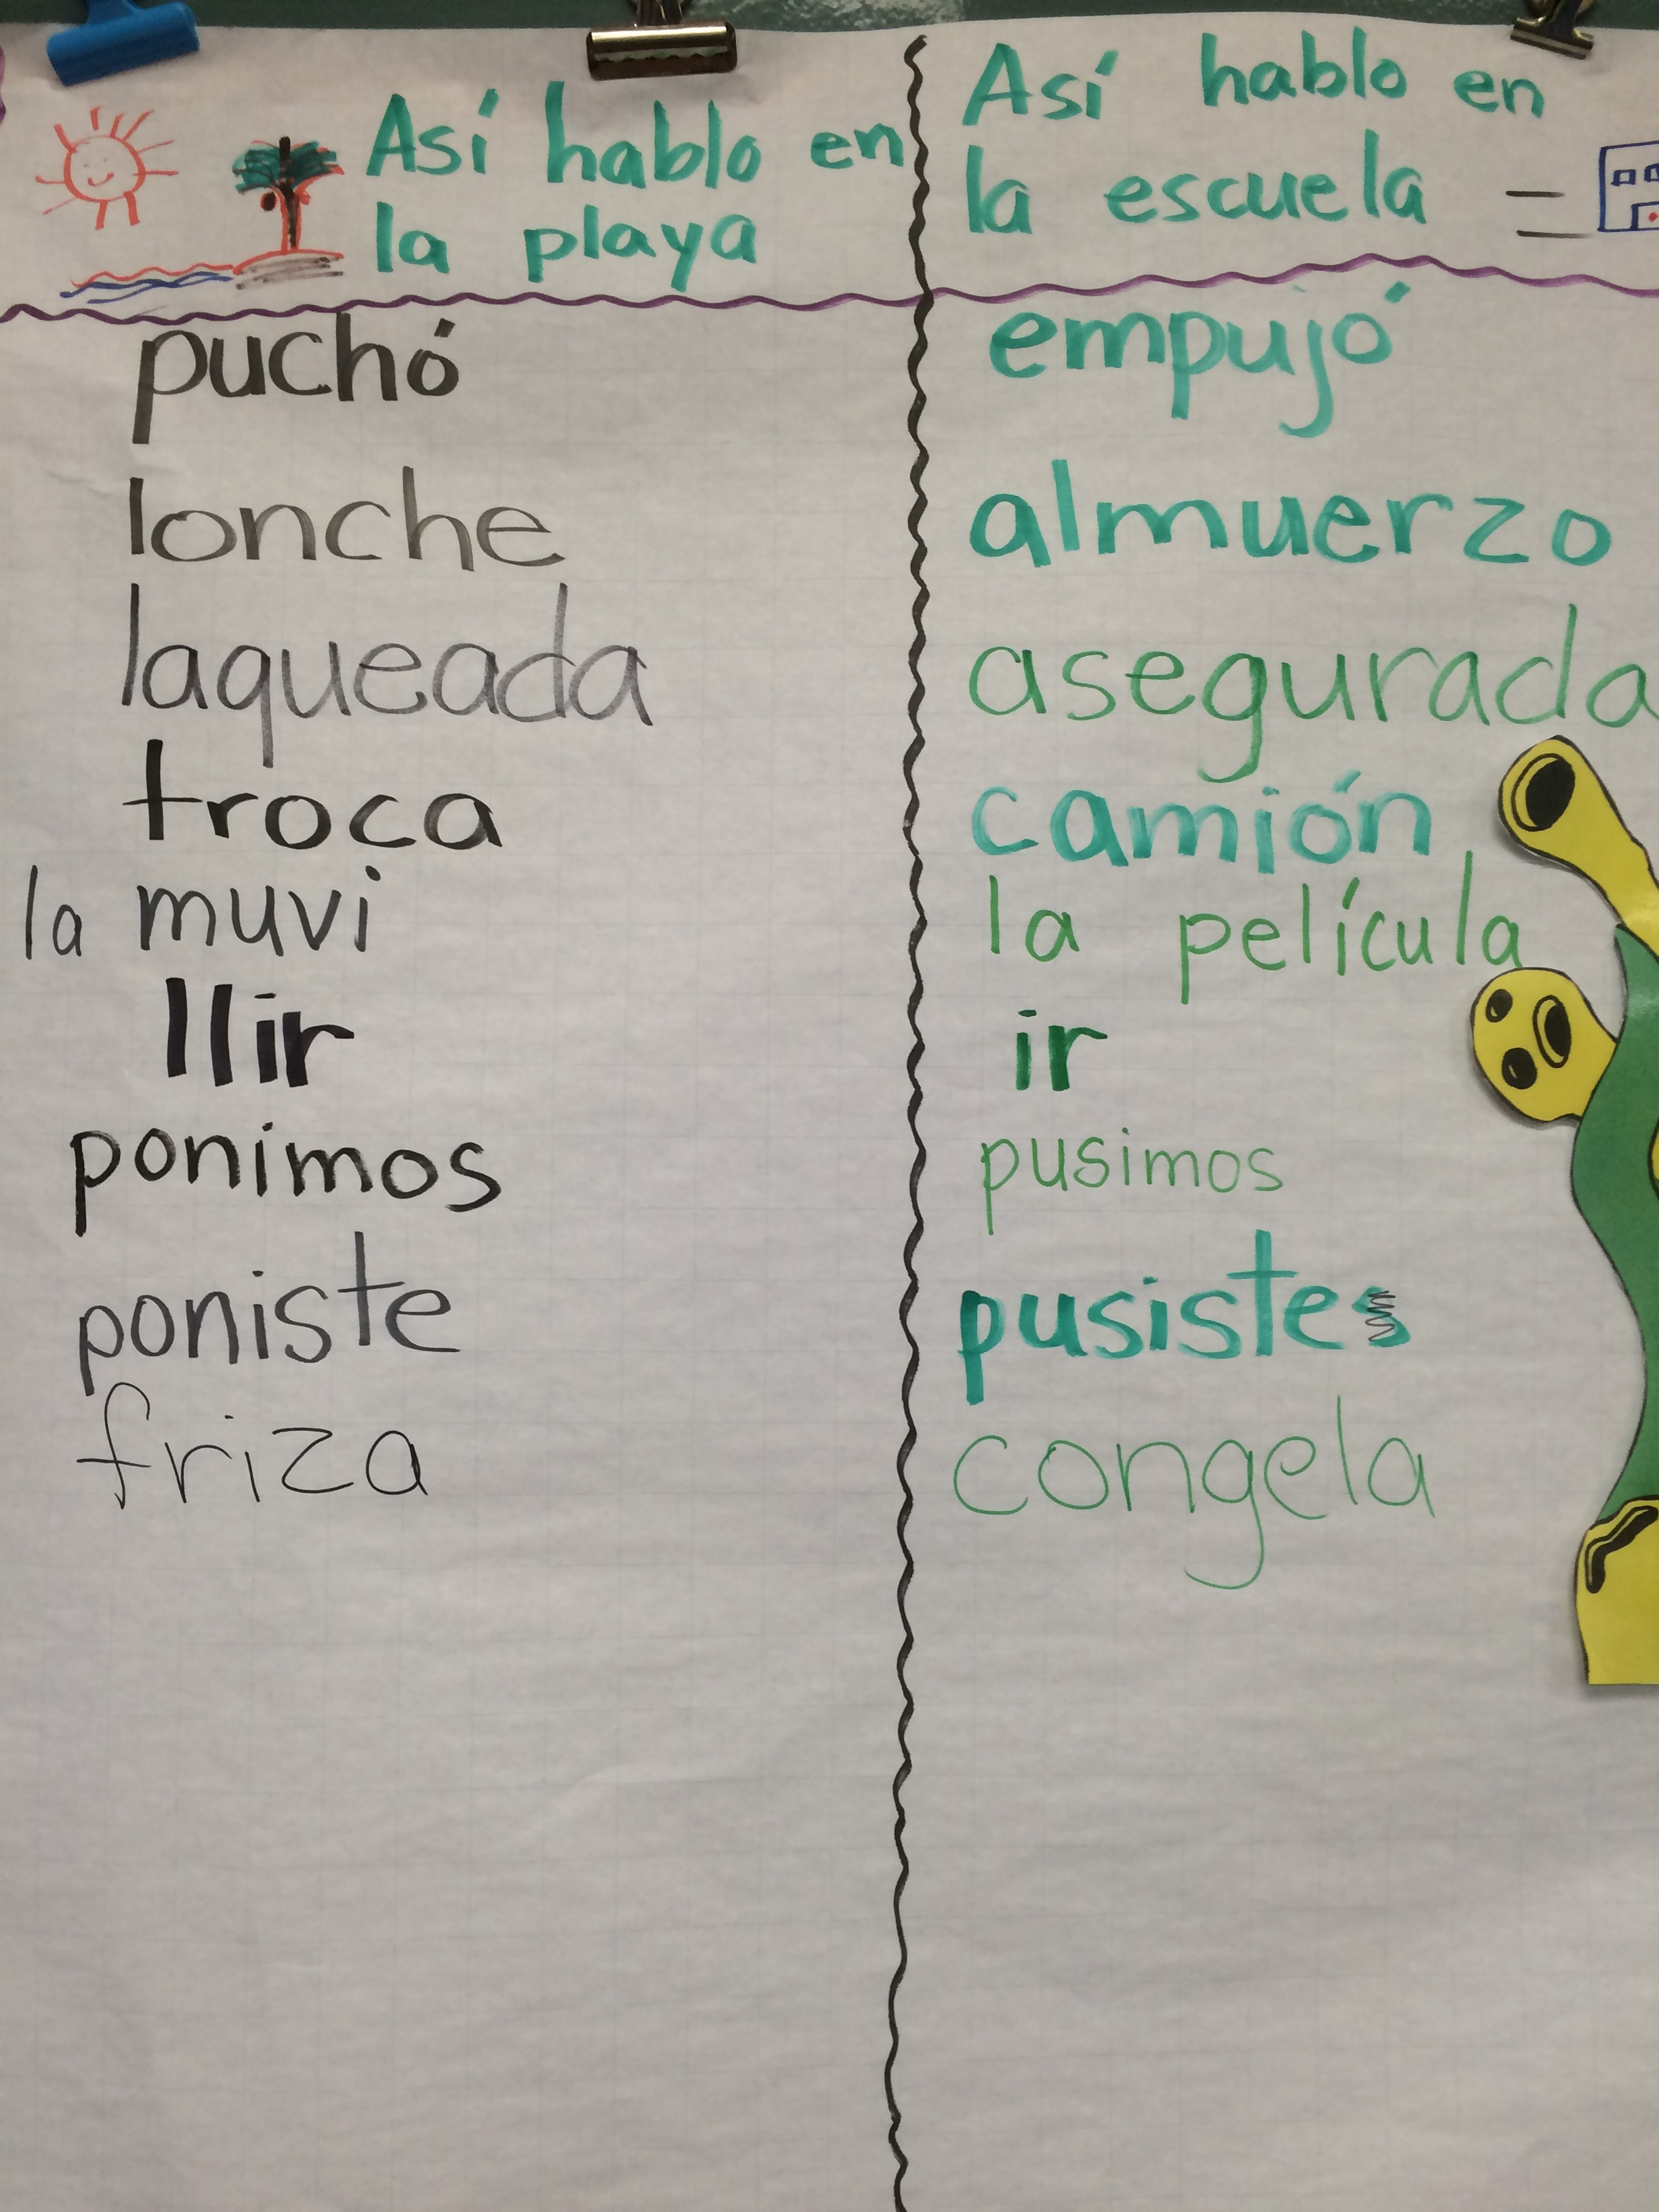 Así hablo en
la playa
Así hablo en
la escuela =
puchó empujó
lonche almuerzo
laqueada asegurada
troca camión
la muvi la película
llir ir
ponimos pusimos
poniste pusiste
friza congela